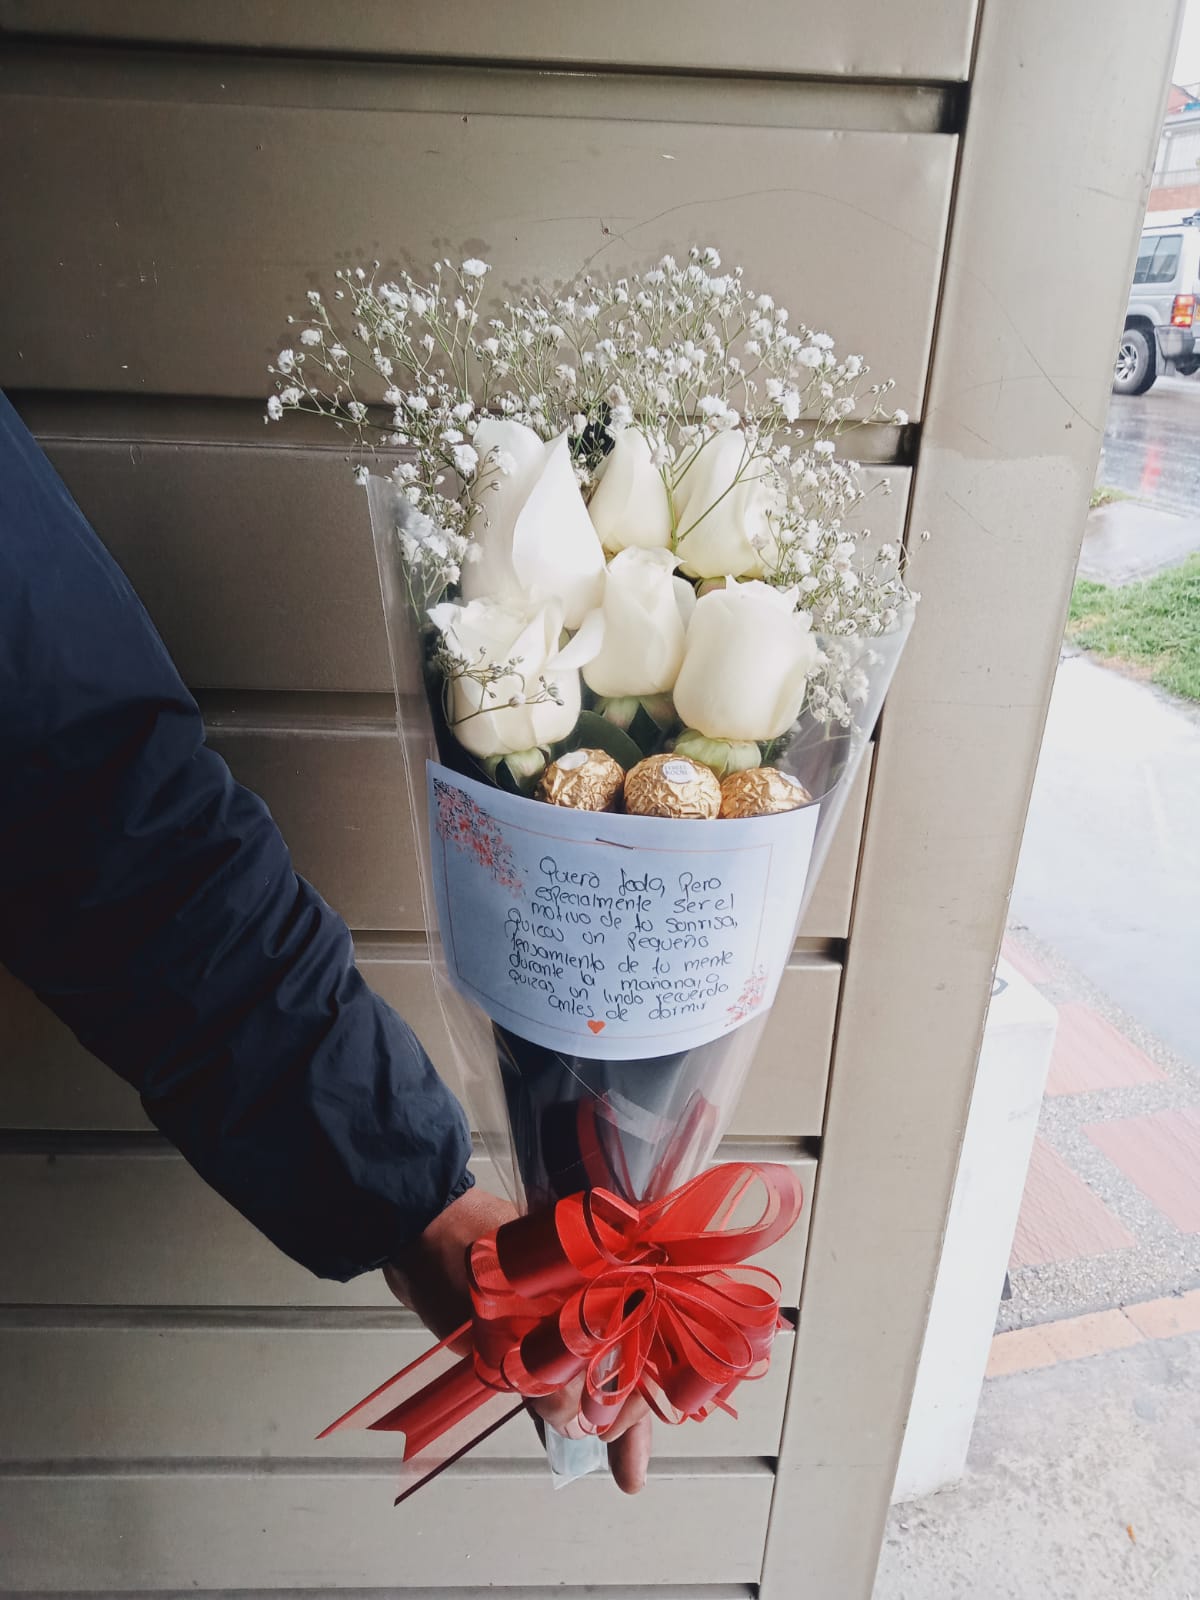 FERRERO
ROCHER
Quiero todo, pero
especialmente ser el
motivo de tu sonrisa,
Quizas un Pequeño
Pensamiento de tu mente
durante la mañana, o
quizas un lindo recuerdo
antes de dormir